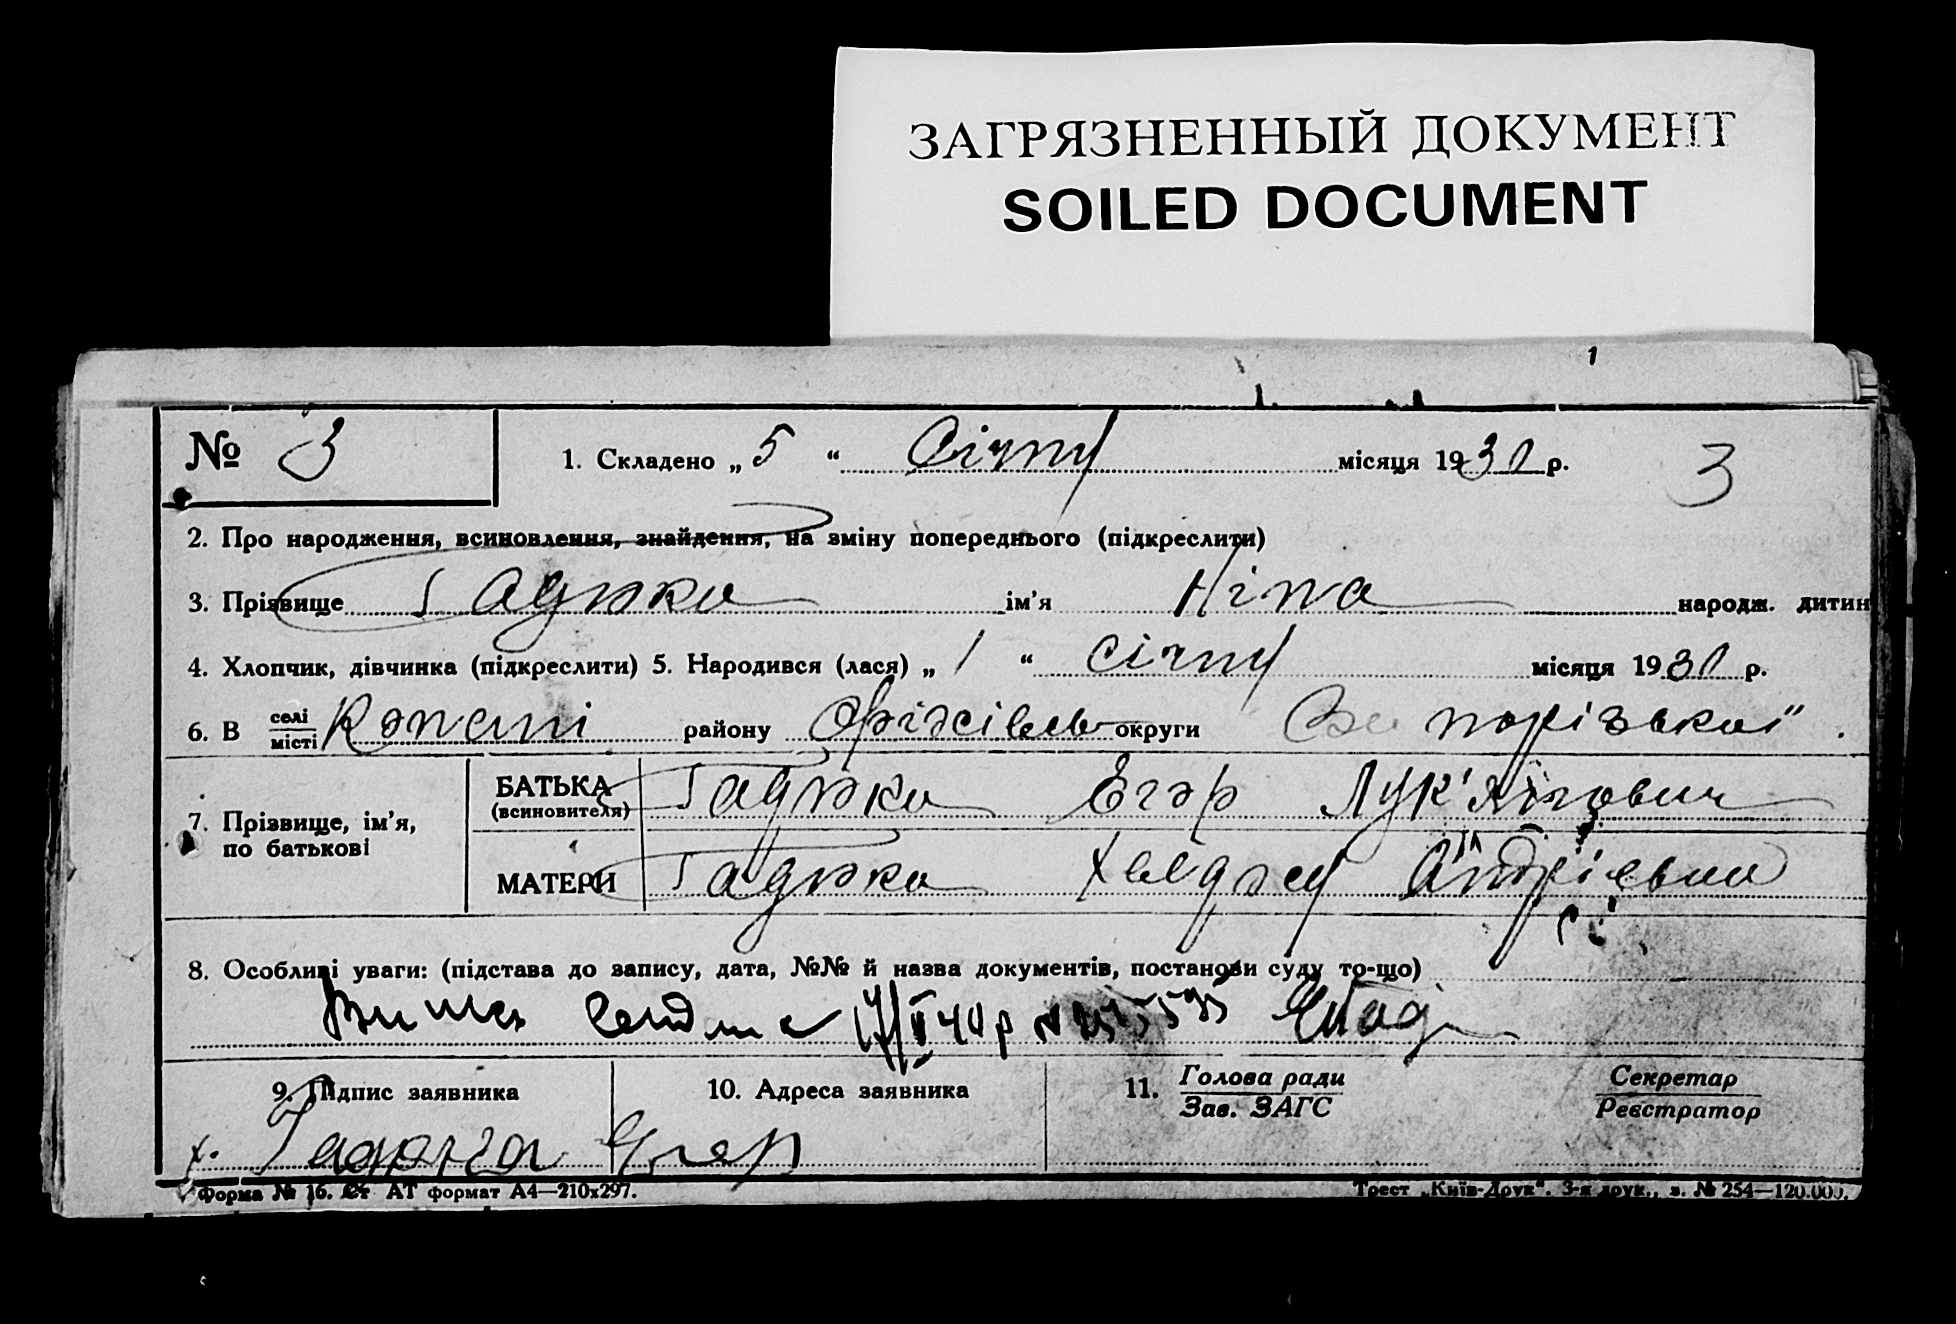 ЗАГРЯЗНЕННЫЙ ДОКУМЕНТ
SOILED DOCUMENT
1
№ 3
1. Складено „ 5 “ Січня місяця 1931 р. 3
2. Про народження, всиновлення, знайдення, на зміну попереднього (підкреслити)
3. Прізвище Гадяка ім’я Ніна народж. дитин
4. Хлопчик, дівчинка (підкреслити) 5. Народився (лася) „ 1 “ січня місяця 1931 р.
6. В селі/місті Копані району округи Запорізької
7. Прізвище, ім’я, по батькові
БАТЬКА (всиновителя) Гадяка Егор Лук'янович
МАТЕРИ Гадяка Хведося Андріевна
8. Особливі уваги: (підстава до запису, дата, №№ й назва документів, постанови суду то-що)
9. Підпис заявника 10. Адреса заявника 11. Голова ради / Зав. ЗАГС Секретар / Реєстратор
Форма № 16. Ст АТ формат А4—210х297. Трест „Київ-Друк“. 3-я друк., з. № 254—120.000.